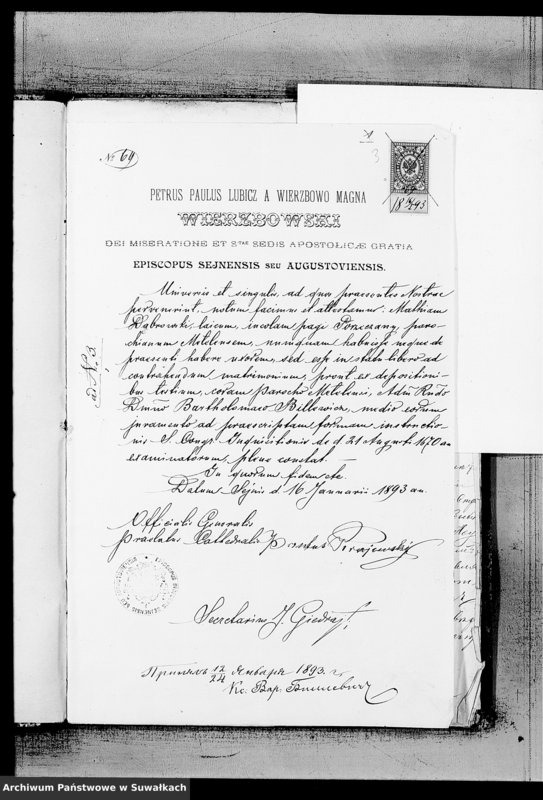 № 69
1
3
18 93
PETRUS PAULUS LUBICZ A WIERZBOWO MAGNA
WIERZBOWSKI
DEI MISERATIONE ET Sᵀᴬᴱ SEDIS APOSTOLICÆ GRATIA
EPISCOPUS SEJNENSIS SEU AUGUSTOVIENSIS.
Universis et singulis, ad quos praesentes Nostrae
pervenerint, notum facimus et attestamur: Mathiam
Dąbrowski, laicum, incolam pagi, paro-
chianum Metelensem, nunquam habuisse neque de
praesenti habere uxorem, sed esse in statu libero ad
contrahendum matrimonium, prout ex depositioni-
bus testium, coram Parocho Metelensi, Adm Rndo
Dnno Bartholomaeo Billewicz, medio eorum
juramento ad praescriptam formam instructio-
nis S. Congr. Inquisitionis de d. 21 Augusti 1670 an.
examinatorum, plene constat.
In quorum fidem etc.
Datum Sejnis d. 16 Januarii 1893 an.
ad № 3
Officialis Generalis
Praelatus Cathedralis
Secretarius J. Giedrayć
Принялъ 12/24 Января 1893 г.
Кс. Вар. Билевичъ
Archiwum Państwowe w Suwałkach